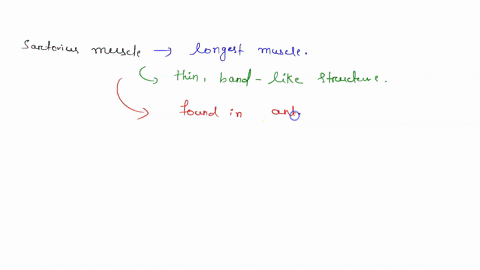 Sartorius muscle → longest muscle.
thin, band-like structure.
found in ant